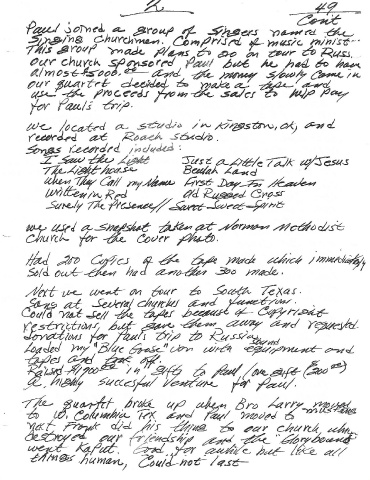 2 49
Con't
Paul joined a group of singers named the
Singing Churchmen. Comprised of music minist--
This group made plans to go on tour to Russ.
our church sponsored Paul but he had to have
almost $5000.00 and the money slowly come in
our quartet decided to make a tape and
use the proceeds from the sales to help pay
for Paul's trip.
we located a studio in Kingston, OK, and
recorded at Roach studio.
Songs recorded included:
I Saw the Light Just a Little Talk w/Jesus
The Light house Beulah Land
When They Call my Name First Day In Heaven
Written in Red Old Rugged Cross
Surely The Presence // Sweet Sweet Spirit
we used a snapshot taken at Norman Methodist
Church for the cover photo.
Had 200 Copies of the tape made which immediately
Sold out then had another 300 made.
Next we went on tour to South Texas.
Sang at several churches and functions.
Could not sell the tapes because of Copyright
restrictions, but gave them away and requested
donations for Paul's trip to Russia.
Loaded my "Blue Goose" van with sound equipment and
tapes and took off.
Raised in gifts to Paul/one gift
a highly succesful venture for Paul.
The quartet broke up when Bro Larry moved
to W. Columbia Tex and Paul moved to
next Frank did his thing to our church, who
destroyed our friendship and the "Glorybound"
went Kaput. Good for awhile but like all
things human, Could not last